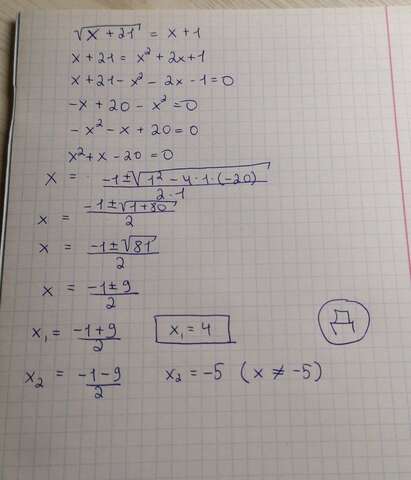 √(x + 21) = x + 1
x + 21 = x² + 2x + 1
x + 21 - x² - 2x - 1 = 0
-x + 20 - x² = 0
-x² - x + 20 = 0
x² + x - 20 = 0
x = (-1 ± √(1² - 4 · 1 · (-20))) / (2 · 1)
x = (-1 ± √(1 + 80)) / 2
x = (-1 ± √81) / 2
x = (-1 ± 9) / 2
x₁ = (-1 + 9) / 2 x₁ = 4
x₂ = (-1 - 9) / 2 x₂ = -5 (x ≠ -5)